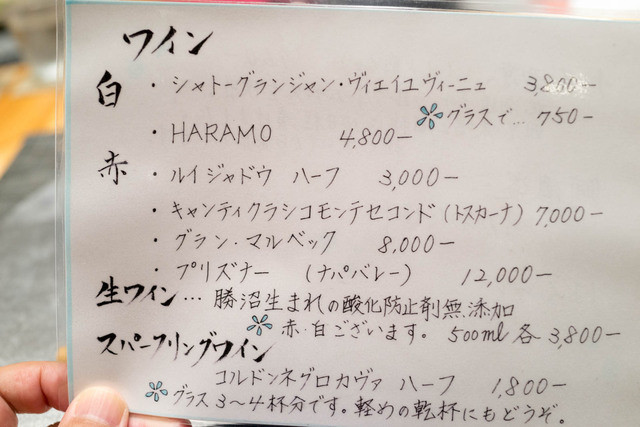 ワイン
白 ・シャトーグランジャン・ヴィエイユヴィーニュ 3,800-
グラスで… 750-
・HARAMO 4,800-
赤 ・ルイジャドウ ハーフ 3,000-
・キャンティクラシコモンテセコンド(トスカーナ) 7,000-
・グラン・マルベック 8,000-
・プリズナー (ナパバレー) 12,000-
生ワイン… 勝沼生まれの酸化防止剤無添加
赤・白ございます。 500ml 各 3,800-
スパークリングワイン
コルドンネグロカヴァ ハーフ 1,800-
グラス3〜4杯分です。軽めの乾杯にもどうぞ。